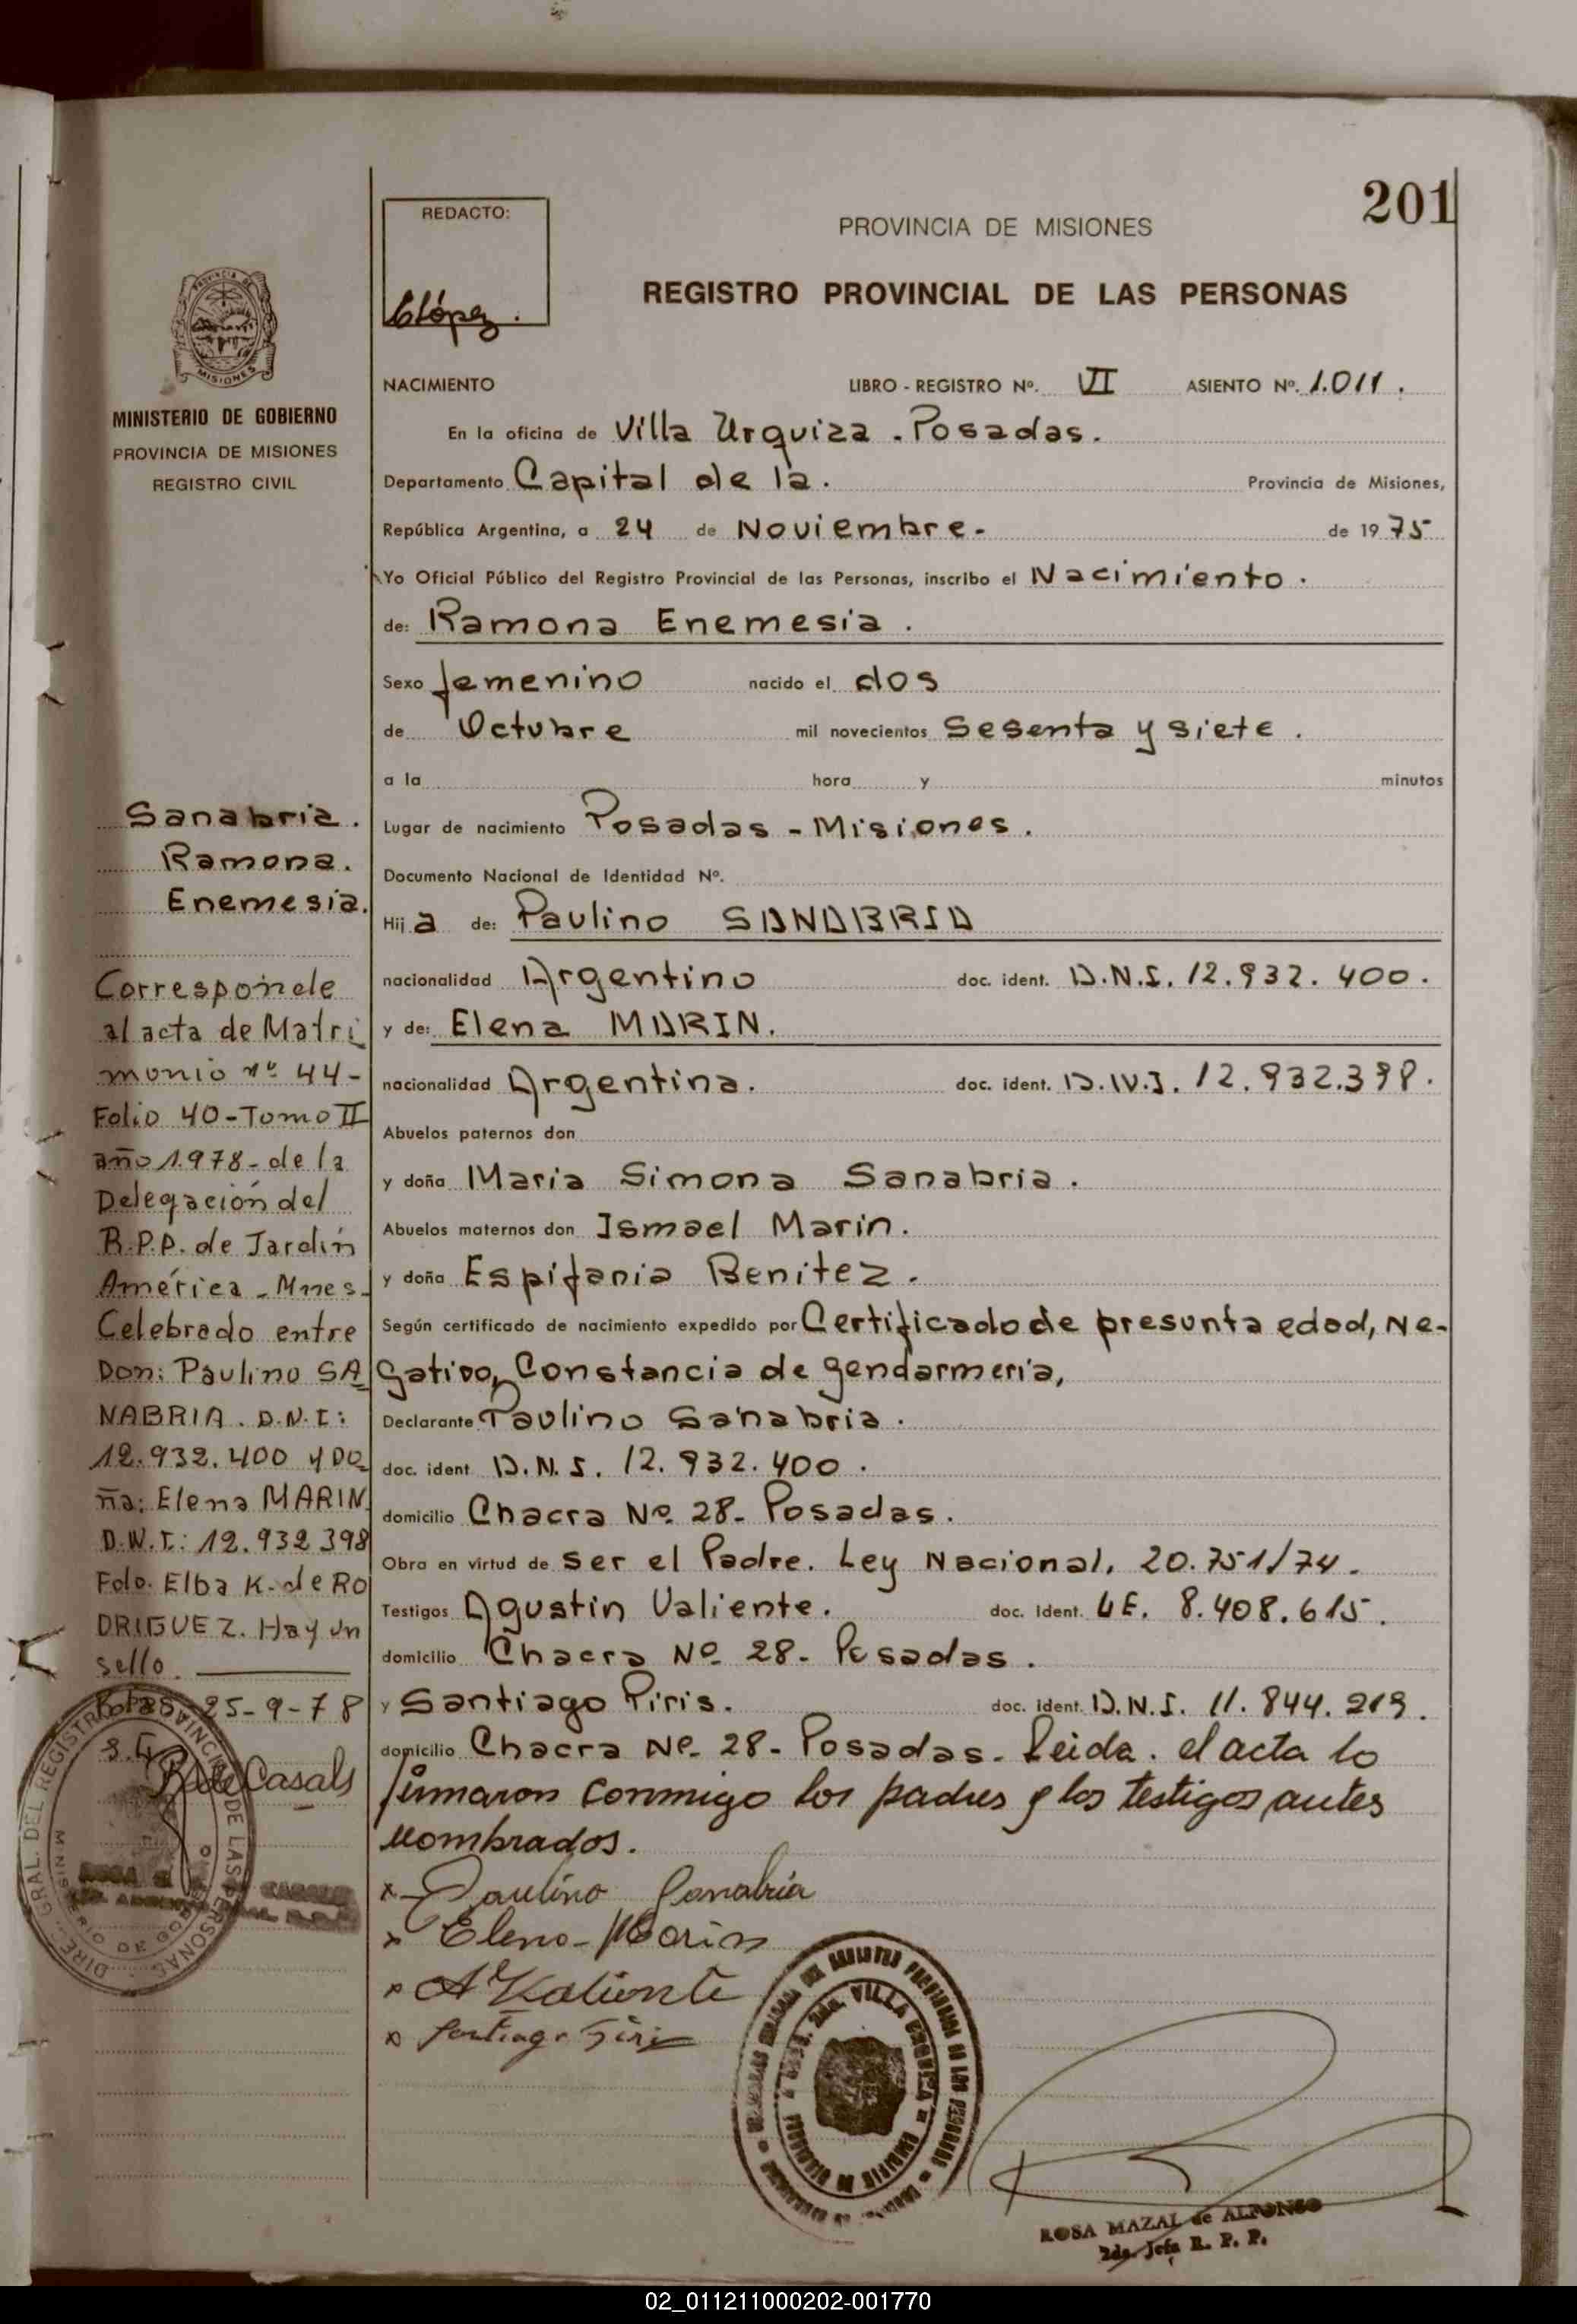 201
REDACTO:
PROVINCIA DE MISIONES
REGISTRO PROVINCIAL DE LAS PERSONAS
López.
PROVINCIA DE
MISIONES
MINISTERIO DE GOBIERNO
PROVINCIA DE MISIONES
REGISTRO CIVIL
NACIMIENTO LIBRO - REGISTRO Nº. VI ASIENTO Nº. 1.011.
En la oficina de Villa Urquiza . Posadas.
Departamento Capital de la. Provincia de Misiones,
República Argentina, a 24 de Noviembre- de 19 75
Yo Oficial Público del Registro Provincial de las Personas, inscribo el Nacimiento.
de: Ramona Enemesia.
Sexo femenino nacido el dos
de Octubre mil novecientos Sesenta y siete.
a la hora y minutos
Lugar de nacimiento Posadas - Misiones.
Documento Nacional de Identidad Nº.
Hij a de: Paulino SANABRIA
nacionalidad Argentino doc. ident. D.N.I. 12.932.400.
y de: Elena MARIN.
nacionalidad Argentina. doc. ident. D.N.I. 12.932.398.
Abuelos paternos don
y doña Maria Simona Sanabria.
Abuelos maternos don Ismael Marin.
y doña Espifania Benitez.
Según certificado de nacimiento expedido por Certificado de presunta edad, Ne-
gativo, Constancia de gendarmeria,
Declarante Paulino Sanabria.
doc. ident D.N.I. 12.932.400.
domicilio Chacra Nº. 28- Posadas.
Obra en virtud de ser el Padre. Ley Nacional, 20.751/74.
Testigos Agustin Valiente. doc. Ident. LE. 8.408.615.
domicilio Chacra Nº 28- Posadas.
y Santiago Piris. doc. ident. D.N.I. 11.844.219.
domicilio Chacra Nº. 28- Posadas- Leida. el acta lo
firmaron conmigo los padres y los testigos antes
nombrados.
x- Paulino Sanabria
x Elena Marin
x A Valiente
x Santiago Piris
Sanabria.
Ramona.
Enemesia.
Corresponde
al acta de Matri
monio nº 44-
Folio 40-Tomo II
año 1.978- de la
Delegación del
R.P.P. de Jardin
América - Mnes-
Celebrado entre
Don: Paulino SA
NABRIA. D.N.I:
12.932.400 y DO
ña: Elena MARIN
D.N.I.: 12.932 398
Fdo. Elba K. de RO
DRIGUEZ. Hay un
sello.
25-9-78
R de Casals
DIREC. GRAL. DEL REGISTRO PROVINCIAL DE LAS PERSONAS
MINISTERIO DE GOBIERNO
VILLA URQUIZA
ROSA MAZAL de ALFONSO
2da. Jefa R. P. P.
02_011211000202-001770